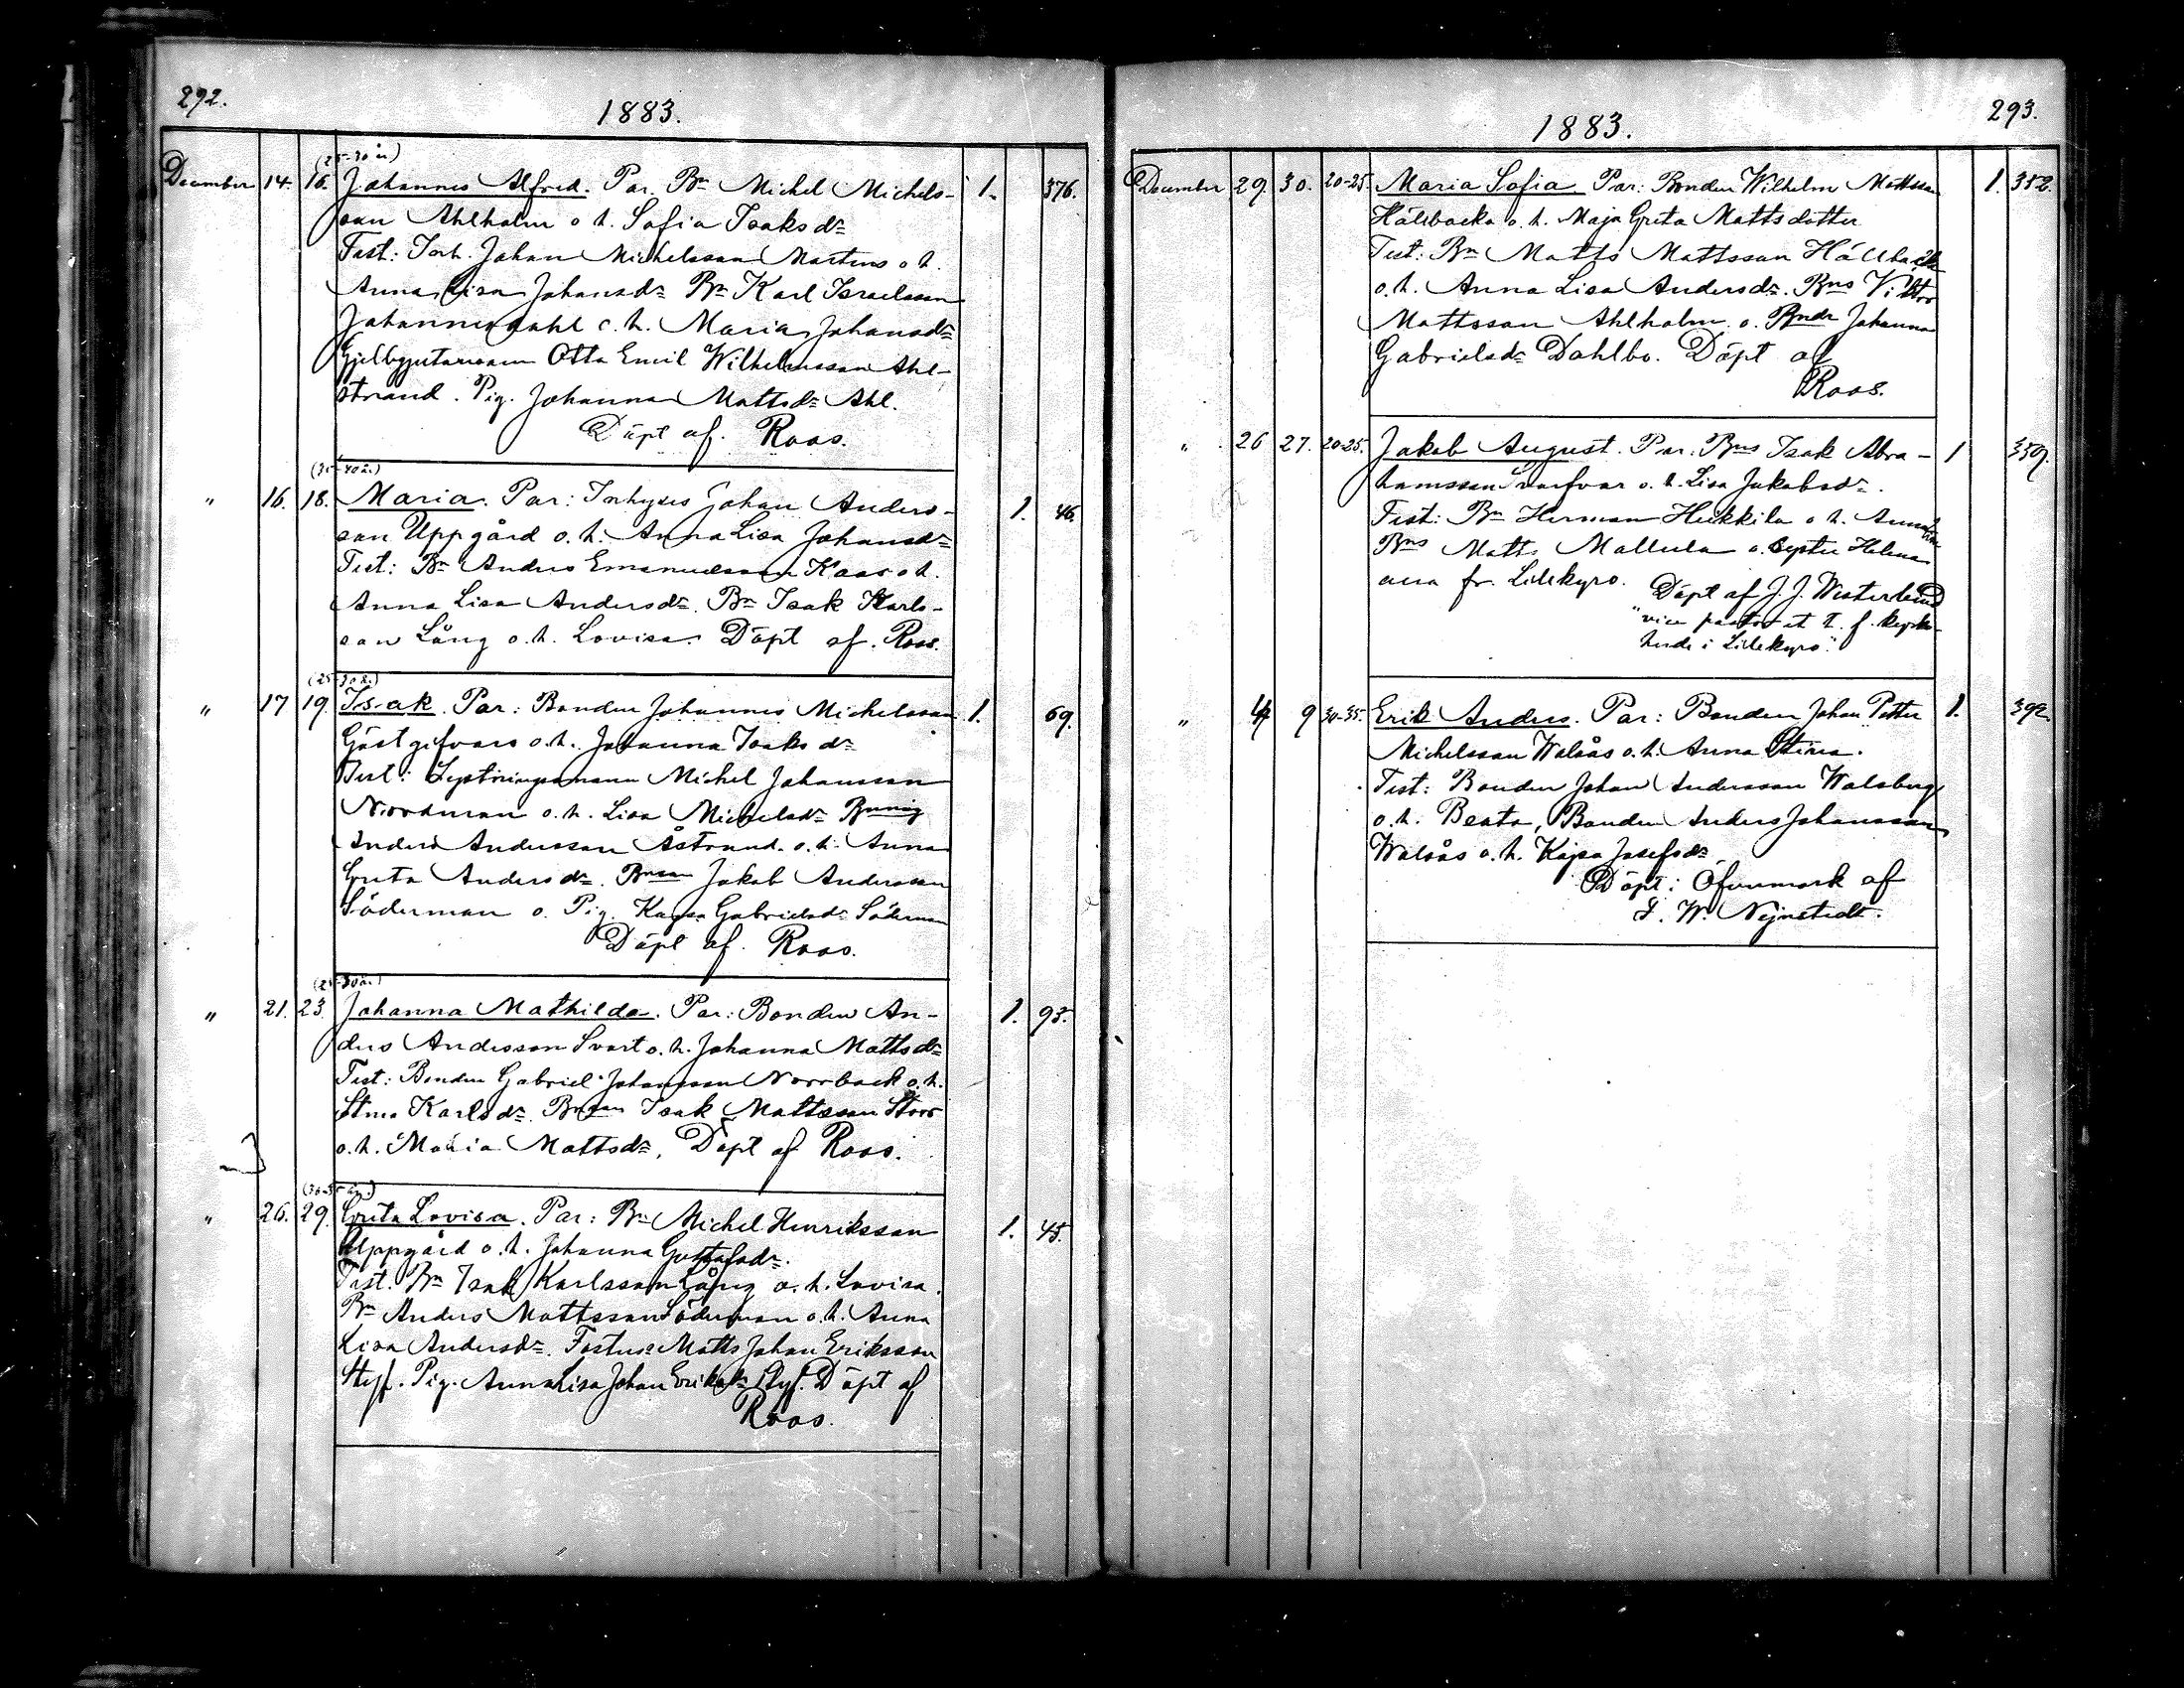 292.
1883.
(25-30 år.)
December 14. 16. Johannes Alfred. Par. Bn Michel Michels- 1. 376.
son Ahlholm o. h. Sofia Isaksdr
Test: Torh. Johan Michelsson Martens o. h.
Anna Lisa Johansdr Bn Karl Israelsson
Johannesdahl o. h. Maria Johansdr
Otto Emil Wilhelmsson Ahl-
strand. Pig. Johanna Mattsdr Ahl.
Döpt af. Roos.
(35-40 år.)
" 16. 18. Maria. Par: Torhyses Johan Anders- 1. 46.
son Uppgård o. h. Anna Lisa Johansdr
Test: Bn Anders Emanuelsson Kaas o h.
Anna Lisa Andersdr. Bn Isak Karls-
son Lång o. h. Lovisa. Döpt af. Roos.
(25-30 år.)
" 17 19. Isak. Par: Bonden Johannes Michelsson 1. 69.
Gästgifvars o. h. Johanna Isaksdr
Test: Michel Johansson
Nordman o. h. Lisa Michelsdr
Anders Andersson Åstrand. o. h. Anna
Greta Andersdr. Bnson Jakob Andersson
Söderman o. Pig. Kajsa Gabrielsdr Söderman
Döpt af. Roos.
(25-30 år.)
" 21. 23. Johanna Mathilda. Par: Bonden An- 1. 93.
ders Andersson Svart o. h. Johanna Mattsdr
Test: Bonden Gabriel Johansson Norrback o. h.
Stina Karlsdr. Bnson Isak Mattsson Stoor
o. h. Maria Mattsdr, Döpt af Roos.
(30-35 år.)
" 26. 29. Greta Lovisa. Par: Bn Michel Henriksson 1. 45.
Uppgård o. h. Johanna Gustafsdr.
Test. Bn Isak Karlsson Lång o. h. Lovisa.
Bn Anders Mattsson Söderman o. h. Anna
Lisa Andersdr. Matts Johan Eriksson
Styf. Pig. Anna Lisa Johan Eriksdr Styf. Döpt af
Roos.
293.
1883.
December 29. 30. 20-25. Maria Sofia Par: Bonden Wilhelm Mattsson 1. 352.
Hällbacka o. h. Maja Greta Mattsdotter
Test: Bn Matts Mattsson Hällback
o. h. Anna Lisa Andersdr. Bns Viktor
Mattsson Ahlholm o. Bndr Johanna
Gabrielsdr Dahlbo. Döpt af
Roos.
" 26 27. 20-25. Jakob August. Par. Bns Isak Abra- 1 359.
hamsson Svarfvar o. h. Lisa Jakobsdr.
Test: Bn Herman Heikkila o h. Anna
Bns Matts Mallula o. Syster Helena
fr. Lillkyro. Döpt af J. J. Westerlund
"vice pastor et t. f. kyrko-
herde i Lillkyro."
" 4 9 30-35. Erik Anders. Par: Bonden Johan Petter 1. 392.
Michelsson Walsås o. h. Anna Stina.
Test: Bonden Johan Andersson Walsberg
o. h. Beata, Bonden Anders Johansson
Walsås o. h. Kajsa Josefsdr
Döpt i Öfvermark af
F. W. Nejnstedt.